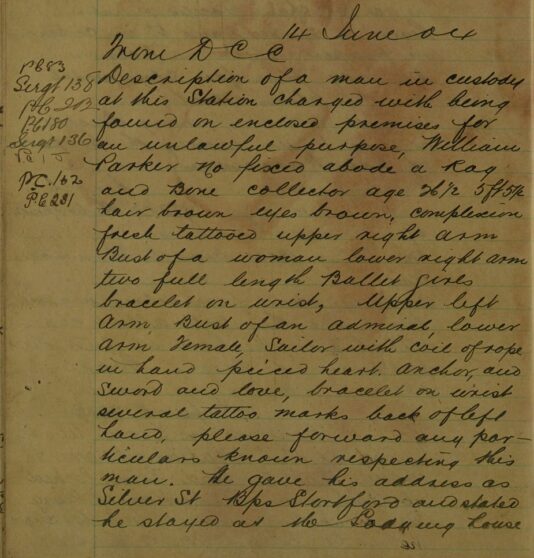 14 June 04
From D C C
PC 83
Sergt 138
PC 213
PC 180
Sergt 136
P.C. 162
PC 281
Description of a man in custody
at this Station charged with being
found on enclosed premises for
an unlawful purpose, William
Parker no fixed abode a Rag
and Bone collector age 26 1/2 5ft 5 1/2
hair brown eyes brown, complexion
fresh tattooed upper right arm
Bust of a woman lower right arm
two full length Ballet girls
bracelet on wrist, Upper left
arm Bust of an admiral, lower
arm Female, Sailor with coil of rope
in hand pierced heart. anchor, and
sword and love, bracelet on wrist
several tattoo marks back of left
hand, please forward any par-
ticulars known respecting this
man. He gave his address as
Silver St Bps Stortford and stated
he stayed at the Lodging house